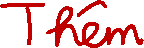 Thêm